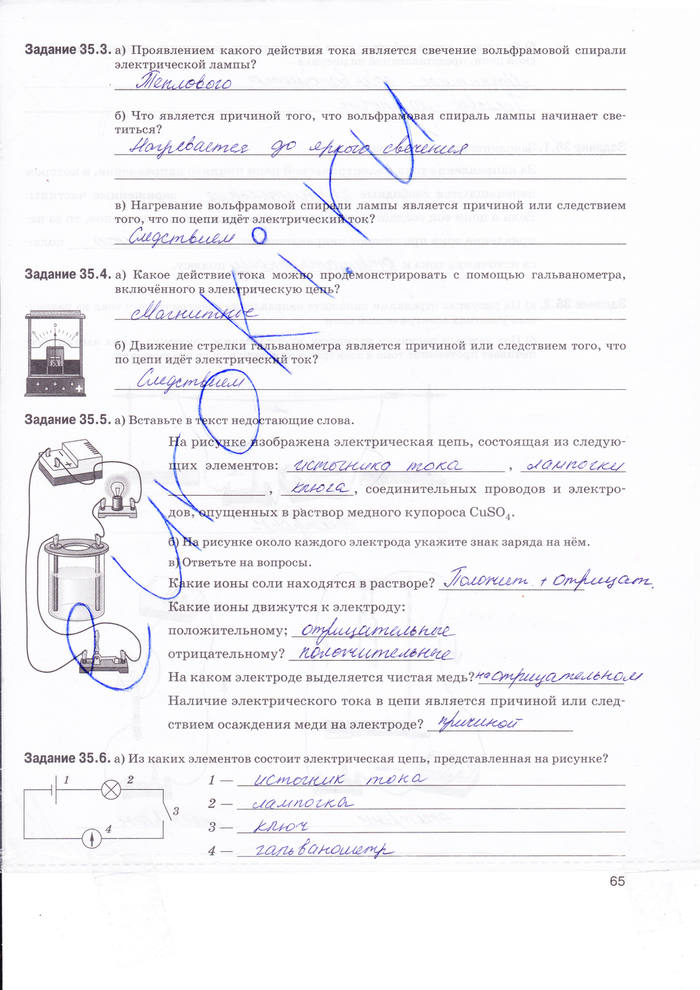 Задание 35.3. а) Проявлением какого действия тока является свечение вольфрамовой спирали
электрической лампы?
Теплового
б) Что является причиной того, что вольфрамовая спираль лампы начинает све-
титься?
Нагревается до яркого свечения
в) Нагревание вольфрамовой спирали лампы является причиной или следствием
того, что по цепи идёт электрический ток?
Следствием
Задание 35.4. а) Какое действие тока можно продемонстрировать с помощью гальванометра,
включённого в электрическую цепь?
Магнитное
б) Движение стрелки гальванометра является причиной или следствием того, что
по цепи идёт электрический ток?
Следствием
Задание 35.5. а) Вставьте в текст недостающие слова.
На рисунке изображена электрическая цепь, состоящая из следую-
щих элементов: источника тока , лампочки
, ключа , соединительных проводов и электро-
дов, опущенных в раствор медного купороса CuSO₄.
б) На рисунке около каждого электрода укажите знак заряда на нём.
в) Ответьте на вопросы.
Какие ионы соли находятся в растворе? Положит. + отрицат.
Какие ионы движутся к электроду:
положительному; отрицательные
отрицательному? положительные
На каком электроде выделяется чистая медь? на отрицательном
Наличие электрического тока в цепи является причиной или след-
ствием осаждения меди на электроде? причиной
Задание 35.6. а) Из каких элементов состоит электрическая цепь, представленная на рисунке?
1 2
3
4
1 — источник тока
2 — лампочка
3 — ключ
4 — гальванометр
65